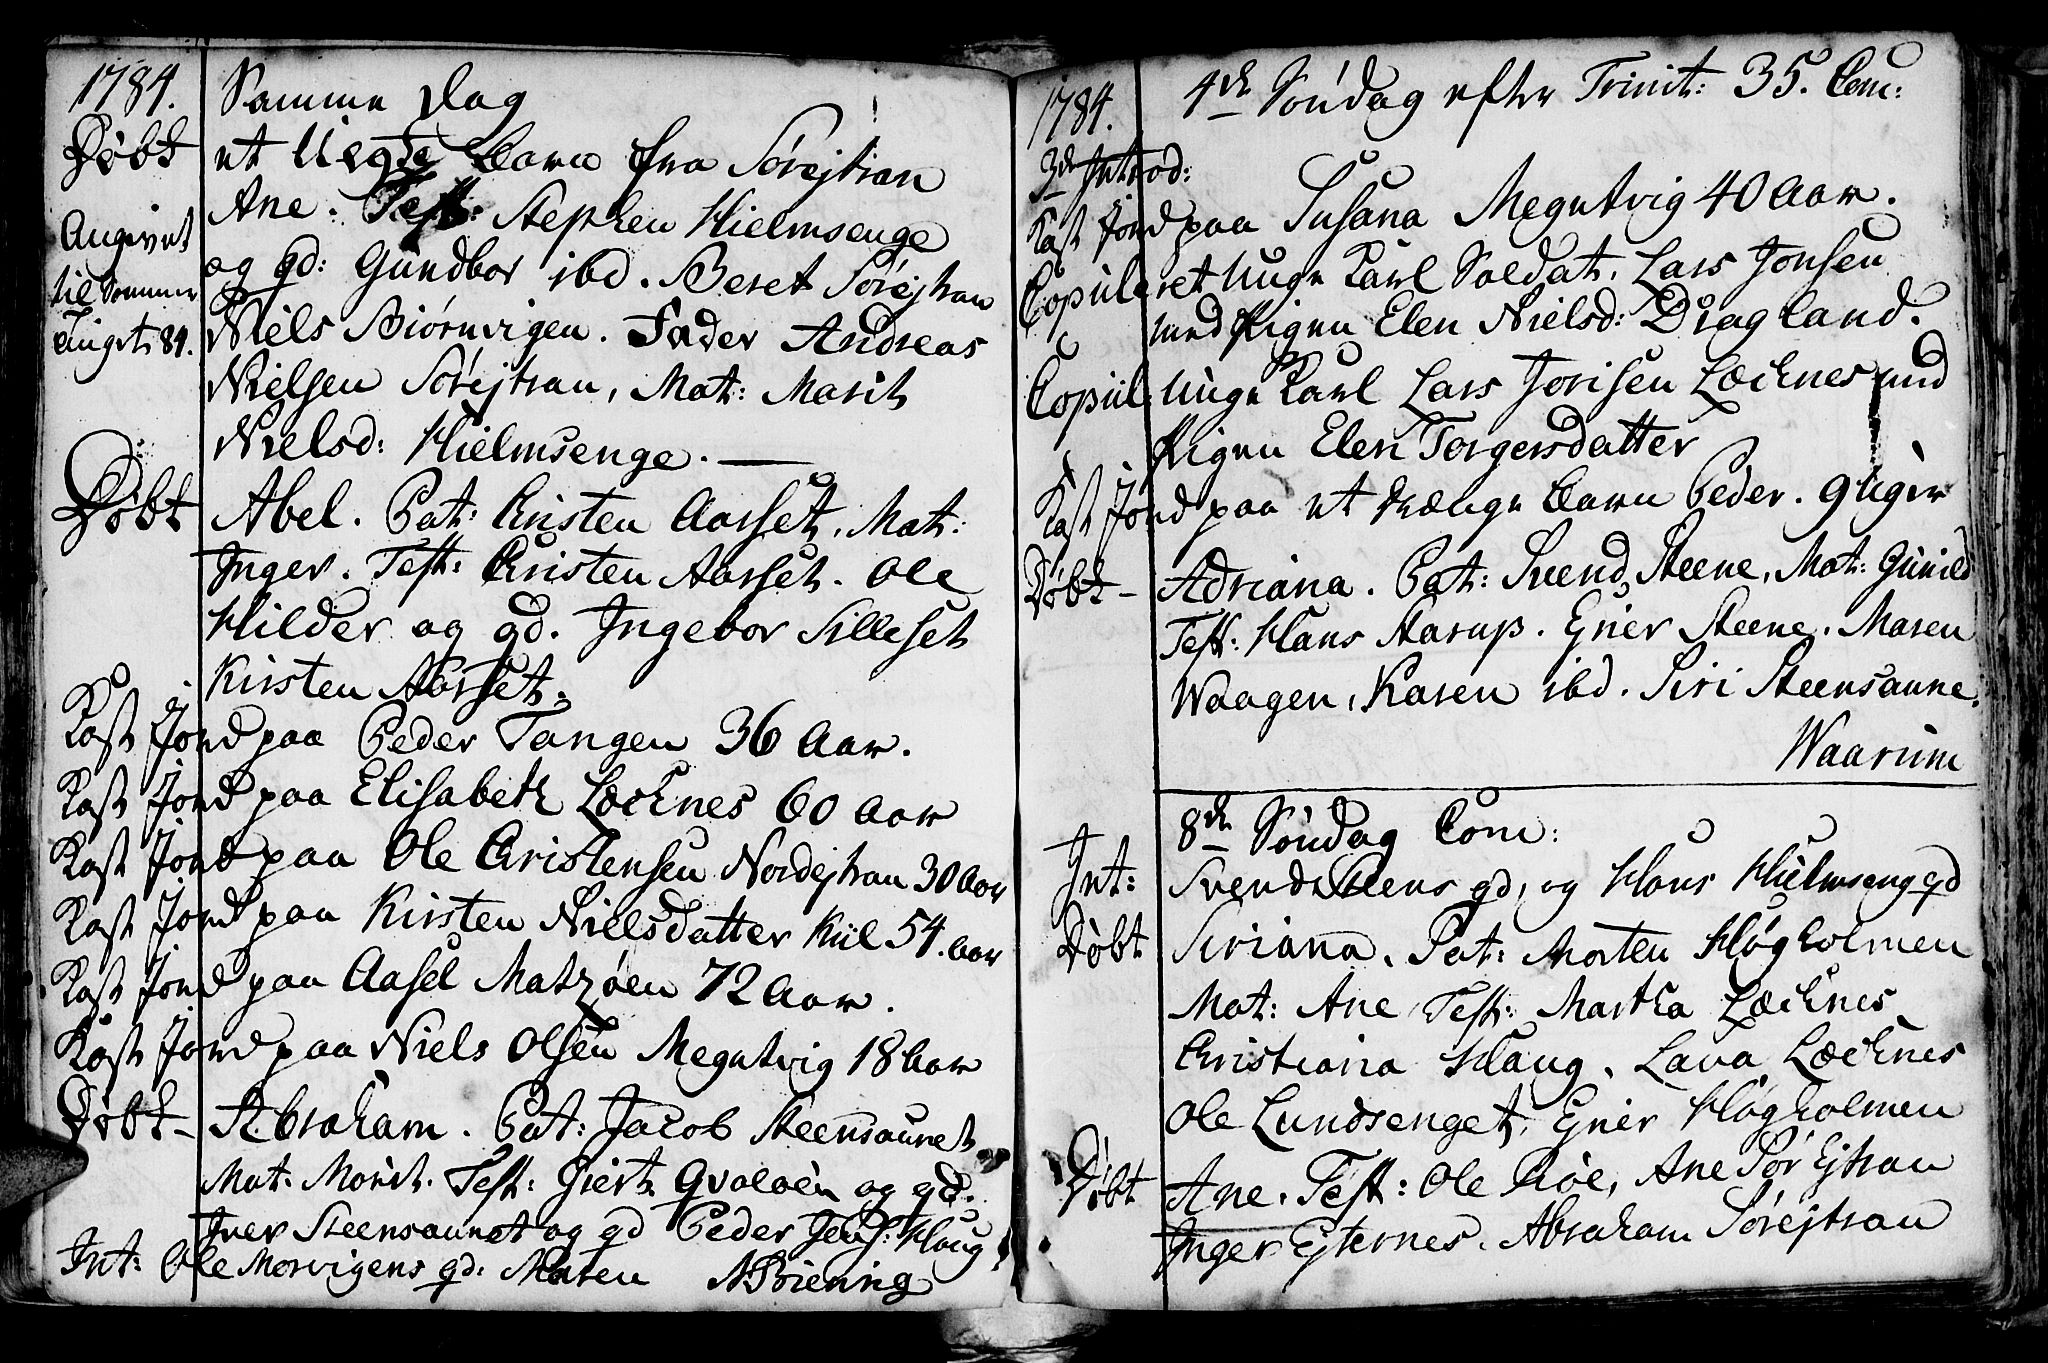 1784.
Samme Dag
Döbt
et Uegte barn fra Sörejtran
Ane. Test: Stephen Hielmsenge
Angivet
til Sommer
Tinget 84.
og gd: Gundbor ibd. Beret Sörejtran
Niels Biörnvigen. Fader Andreas
Nielsen Sörejtran, Mat: Marit
Nielsd: Hielmsenge.
Döbt
Abel. Pat: Cristen Aasset. Mat:
Inger. Test: Cristen Aasset. Ole
Hilder og gd. Ingebor Silleset
Kirsten Aasset.
Kast Jord paa Peder Tangen 36 Aar.
Kast Jord paa Elisabeth Lochnes 60 Aar
Kast Jord paa Ole Cristensen Nordejtran 30 Aar
Kast Jord paa Kirsten Nielsdatter Kiil 54. Aar
Kast Jord paa Aasel Matzöen 72 Aar.
Kast Jord paa Niels Olsen Megutvig 18 Aar
Döbt – Abraham. Pat: Jacob Steensaunet
Mat: Marit. Test: Giert Qvalöen og gd.
Iver Steensaunet og gd Peder Jens: Haug
Int: Ole Morvigens gd: Maren
1784.
4de Söndag efter Trinit: 35. Com:
3de Introd:
Kast Jord paa Susana Megutvig 40 Aar.
Copuleret Unge Karl Soldat. Lars Jonsen
med Pigen Elen Nielsd: Dragland.
Copul Unge Karl Lars Jonsen Lochnes med
Pigen Elen Torgersdatter
Kast Jord paa et drænge barn Peder. 9 Uger
Döbt – Adriana. Pat: Svend Steene, Mat: Gunild
Test: Hans Aarup. Ener Steene. Maren
Waagen, Karen ibd. Siri Steensaune.
Waarum
8de Söndag Com:
Int:
Svend Steens gd, og Hans Hielmseng gd
Döbt
Siriana. Pat: Morten Högholmen
Mat: Ane Test: Martha Lochnes
Cristiana Haug. Lava Lochnes
Ole Lundsenget, Ener Högholmen
Döbt
Ane. Test: Ole Röe, Ane Sör Ejtran
Inger Ejternes. Abraham Sörejtran